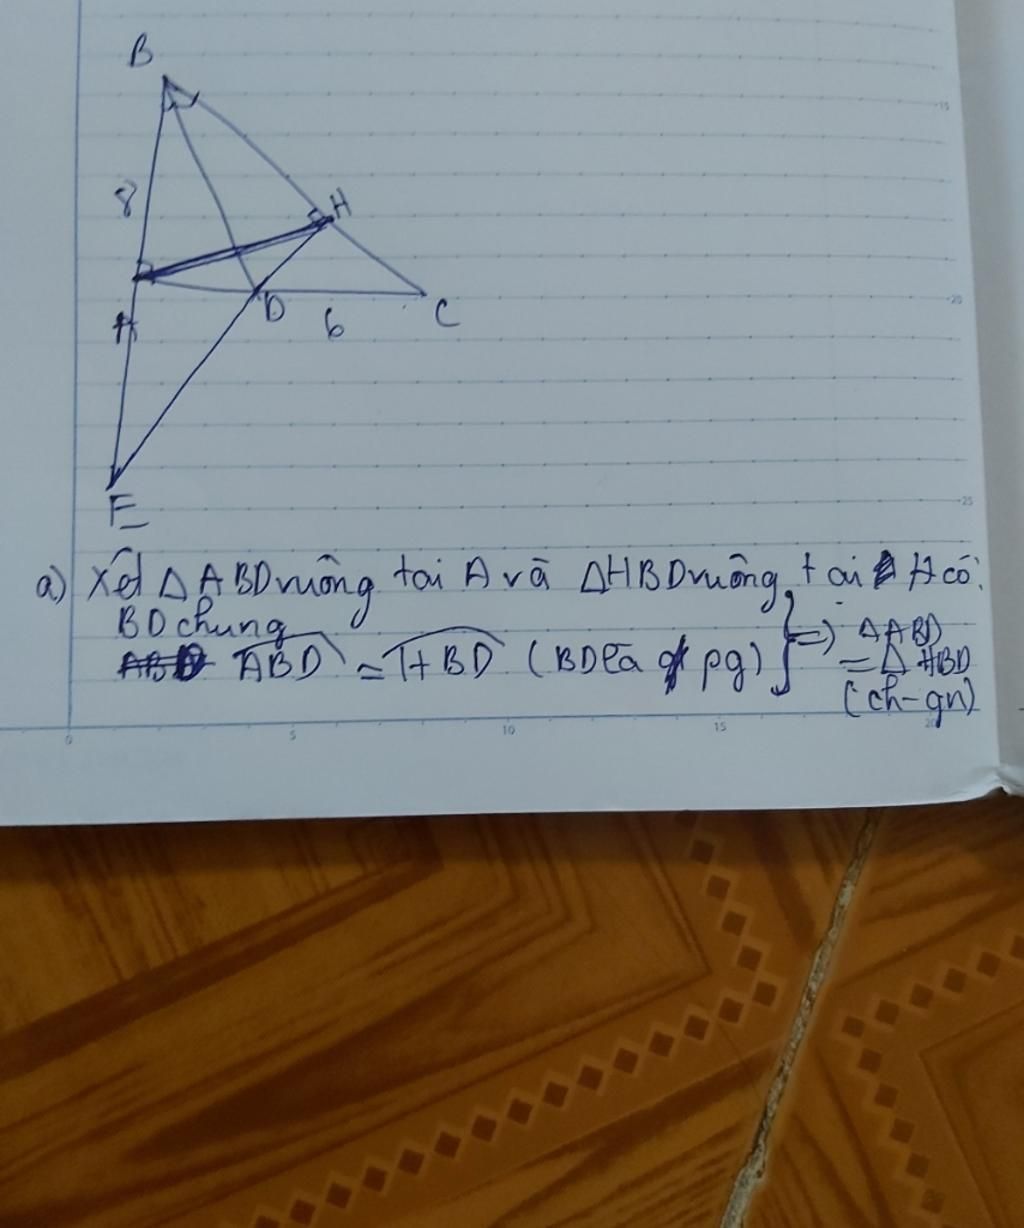 B
8
H
A
D
6
C
E
a) Xét ΔABD vuông tại A và ΔHBD vuông tại H có:
BD chung
ABD = HBD (BD là pg) } => ΔABD
= ΔHBD
(ch-gn)
15
20
25
0
5
10
15
20